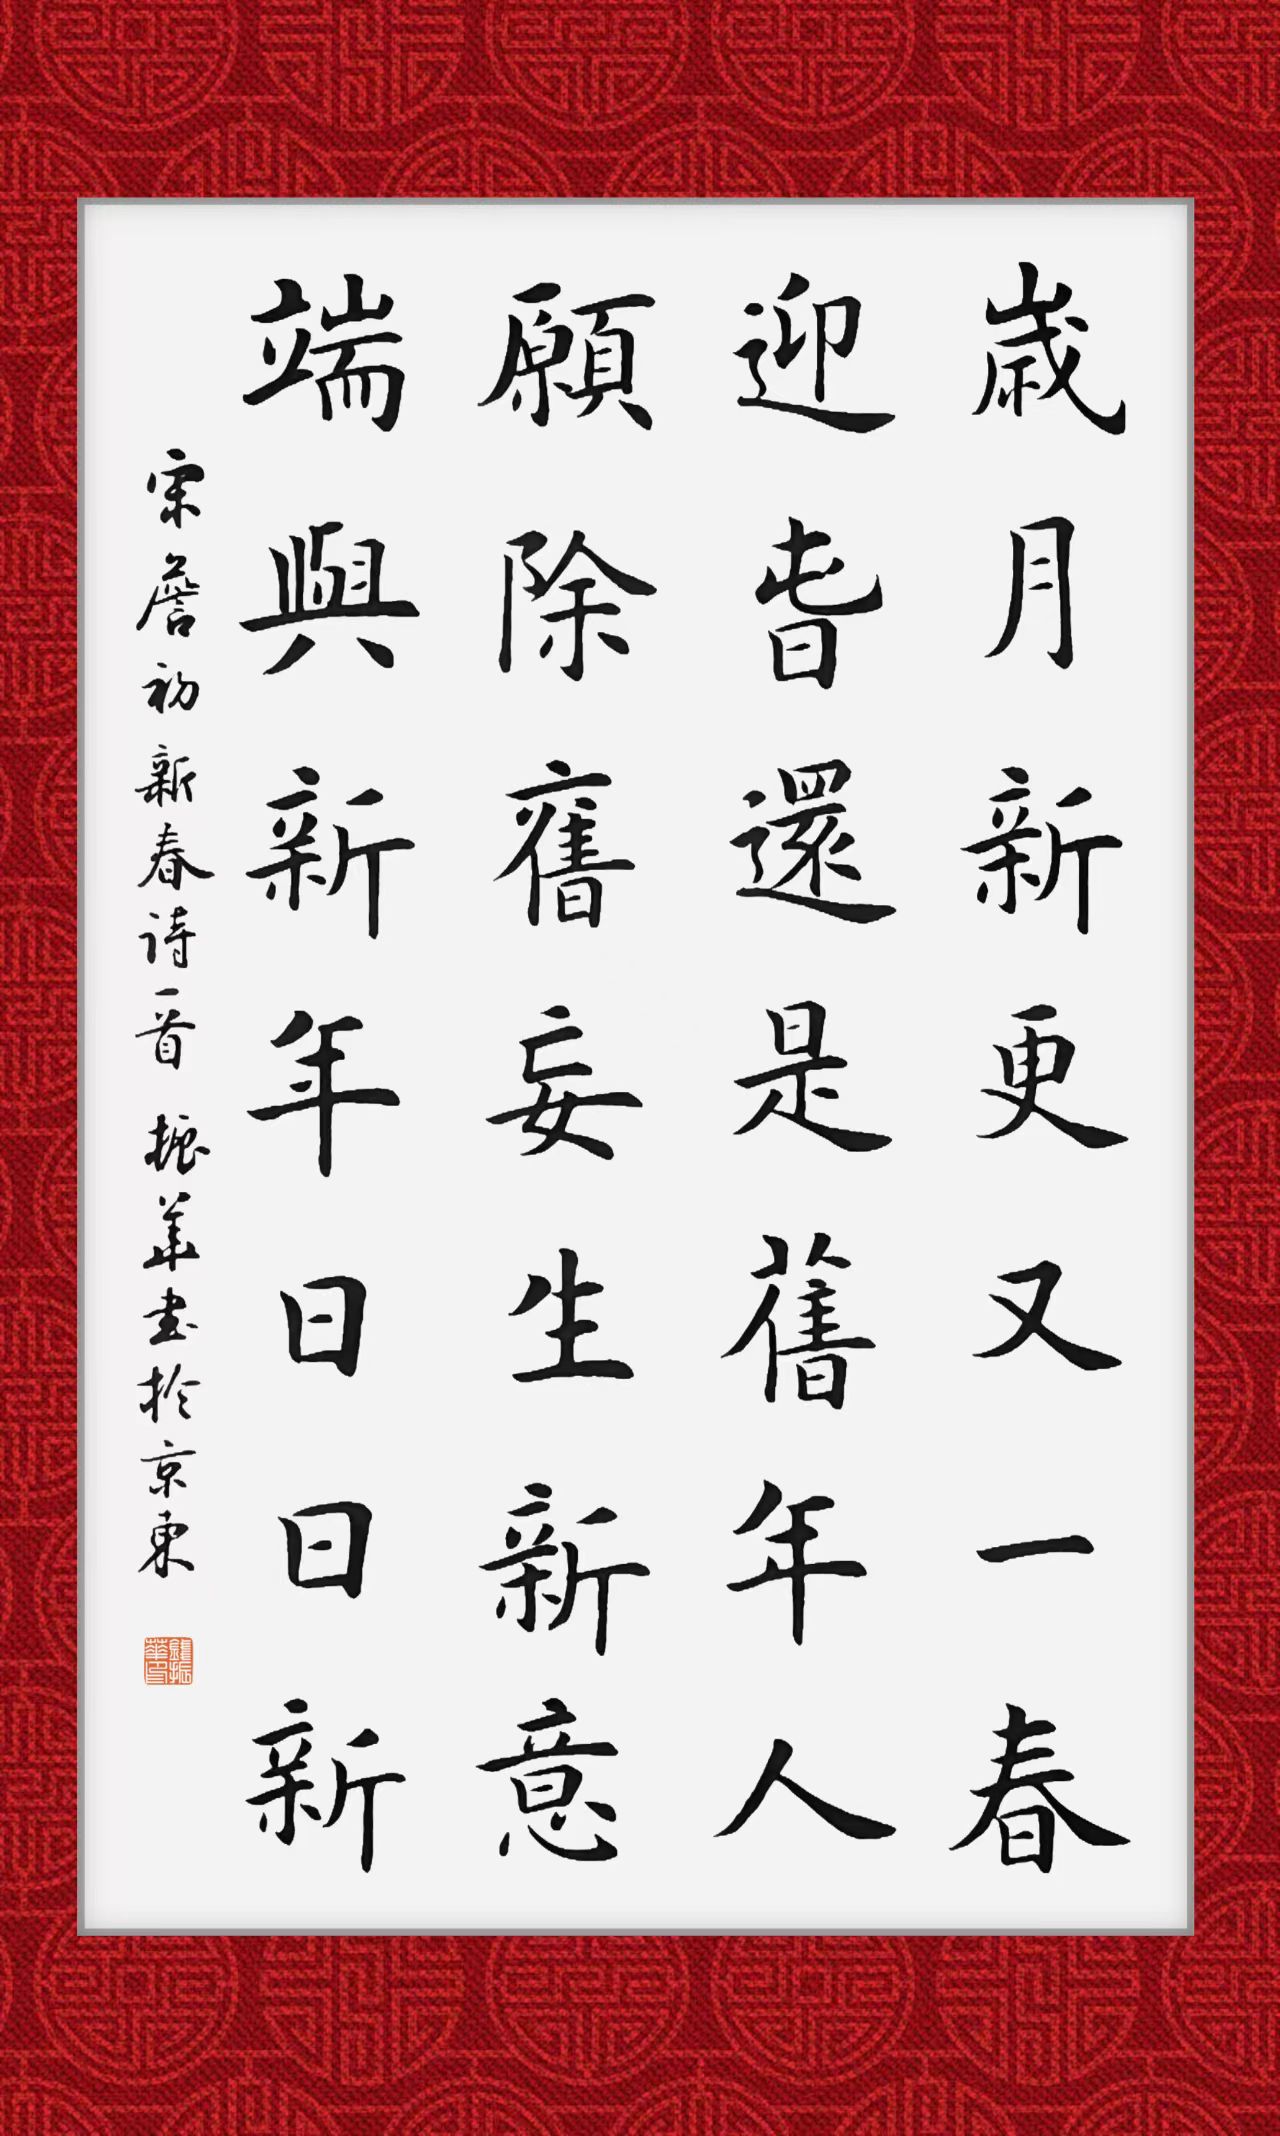 歲月新更又一春
迎旹還是舊年人
願除舊妄生新意
端與新年日日新
宋詹初新春诗一首 振華書於京東